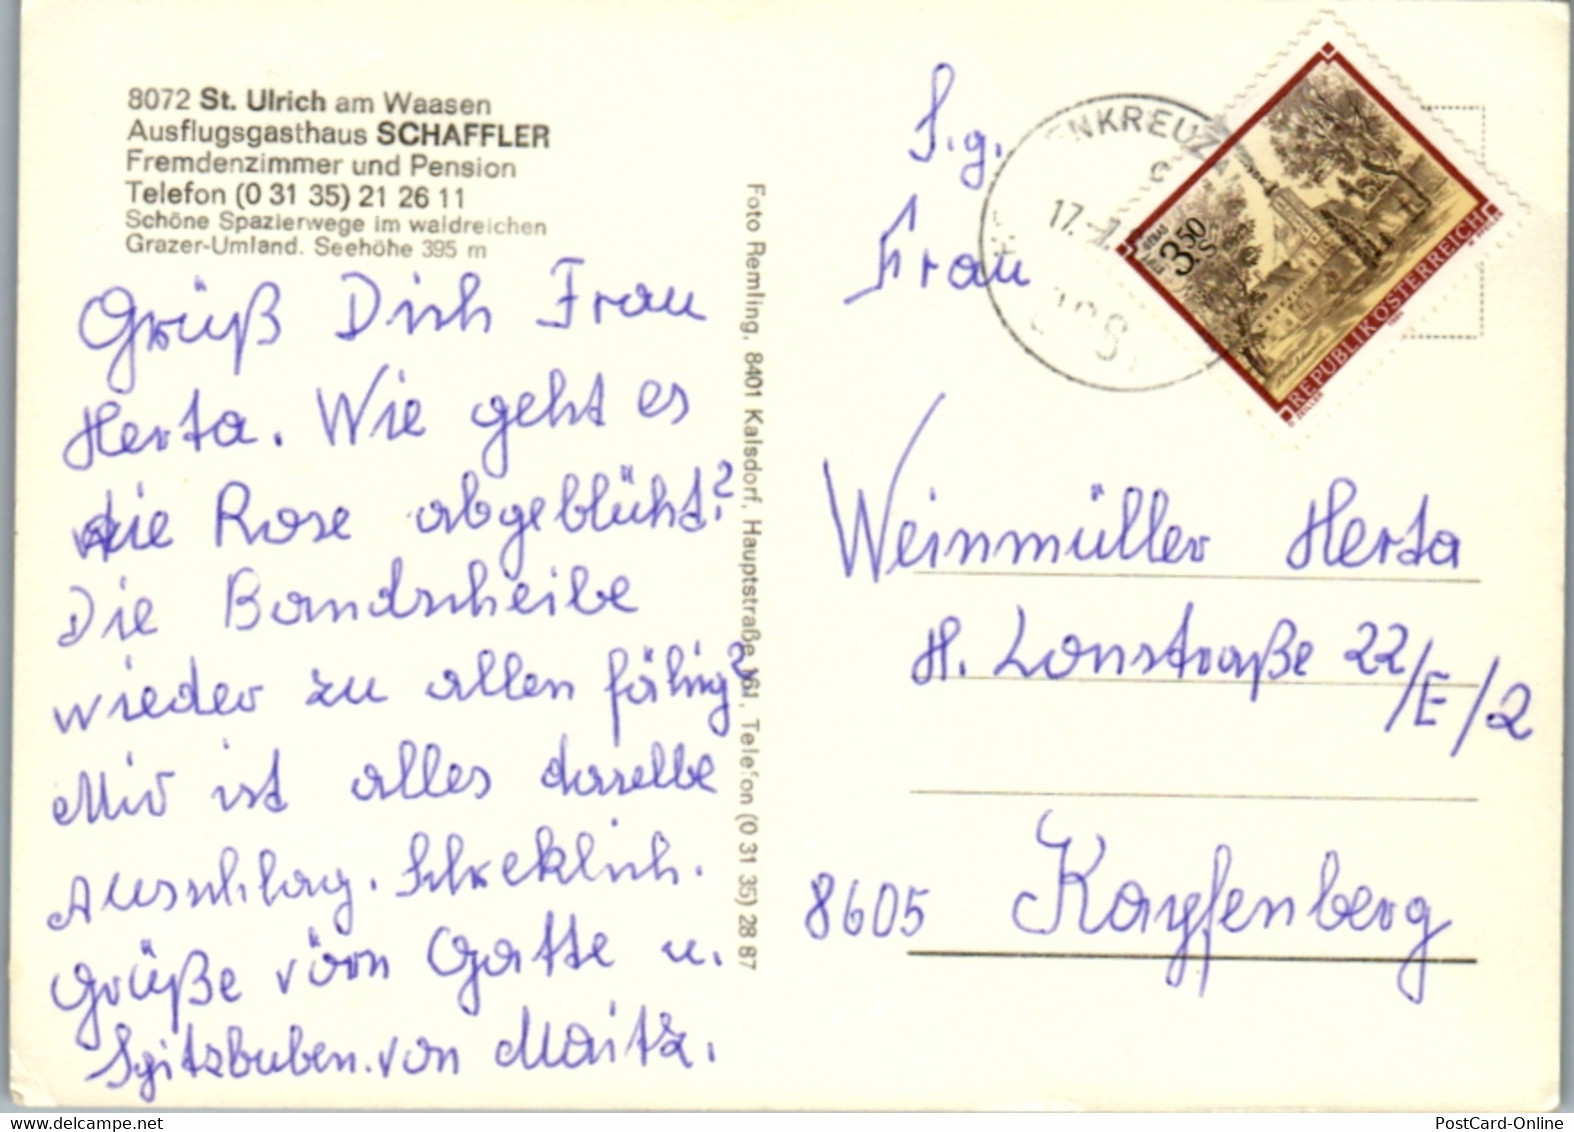 8072 St. Ulrich am Waasen
Ausflugsgasthaus SCHAFFLER
Fremdenzimmer und Pension
Telefon (0 31 35) 21 26 11
Schöne Spazierwege im waldreichen
Grazer-Umland. Seehöhe 395 m
Grüß Dich Frau
Herta. Wie geht es
die Rose abgeblüht?
Die Bandscheibe
wieder zu allen fähig?
Mir ist alles daselbe
Ausschlag. Schreklich.
Grüße vom Gatte u.
Spitzbuben. von Maitz.
Foto Remling, 8401 Kalsdorf, Hauptstraße 161, Telefon (0 31 35) 28 87
S.g.
Frau
Weinmüller Herta
H. Lonstraße 22/E/2
8605 Kapfenberg
ENKREUZ
17.
3.50
S
REPUBLIK ÖSTERREICH
PostCard-Online
www.delcampe.net